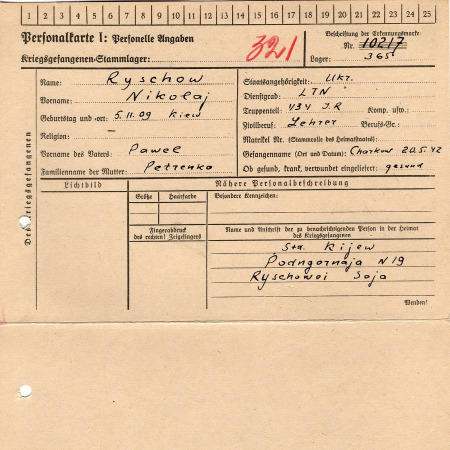 1 2 3 4 5 6 7 8 9 10 11 12 13 14 15 16 17 18 19 20 21 22 23 24 25
Personalkarte I: Personelle Angaben
Kriegsgefangenen-Stammlager:
321
Beschriftung der Erkennungsmarke
Nr. 10217
Lager: 365
Des Kriegsgefangenen
Name: Ryschow
Vorname: Nikolaj
Geburtstag und -ort: 5.11.09 Kiew
Religion:
Vorname des Vaters: Pawel
Familienname der Mutter: Petrenko
Staatsangehörigkeit: Ukr.
Dienstgrad: LTN
Truppenteil: 434 J.R Komp. usw.:
Zivilberuf: Lehrer Berufs-Gr.:
Matrikel Nr. (Stammrolle des Heimatstaates):
Gefangennahme (Ort und Datum): Charkow 20.5.42
Ob gesund, krank, verwundet eingeliefert: gesund
Lichtbild
Nähere Personalbeschreibung
Größe
Haarfarbe
Besondere Kennzeichen:
Fingerabdruck
des rechten! Zeigefingers
Name und Anschrift der zu benachrichtigenden Person in der Heimat
des Kriegsgefangenen
Std. Kijew
Podngornaja N 19
Ryschowoi Soja
Wenden!